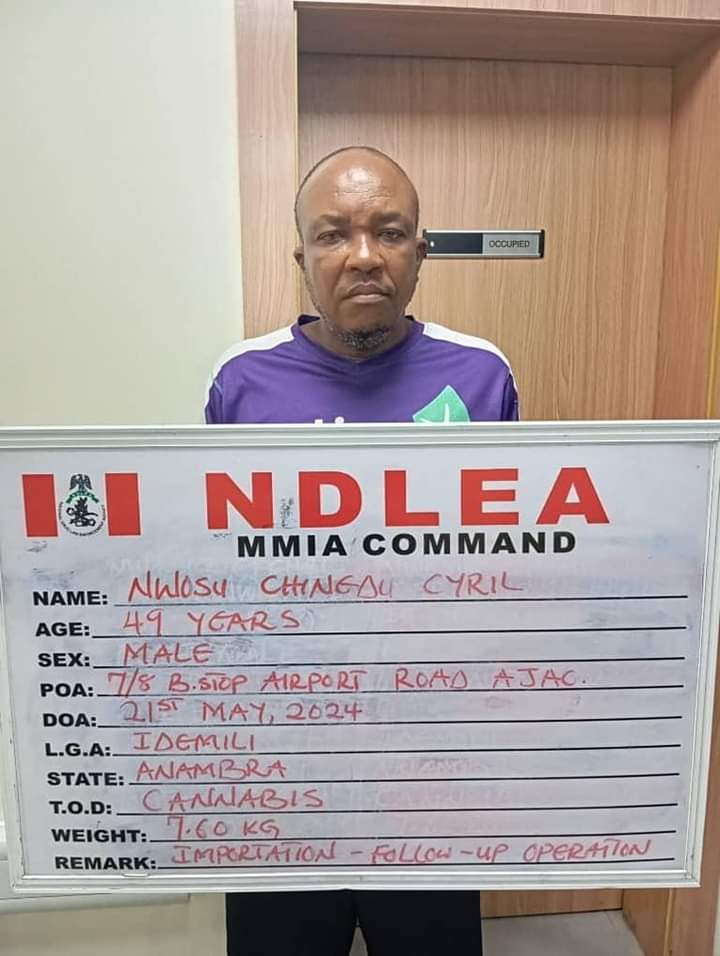 OCCUPIED
NDLEA
MMIA COMMAND
NAME: NWOSU CHINEDU CYRIL
AGE: 49 YEARS
SEX: MALE
POA: 7/8 B.STOP AIRPORT ROAD AJAO.
DOA: 21ST MAY, 2024
L.G.A: IDEMILI
STATE: ANAMBRA
T.O.D: CANNABIS
WEIGHT: 7.60 KG
REMARK: IMPORTATION - FOLLOW-UP OPERATION